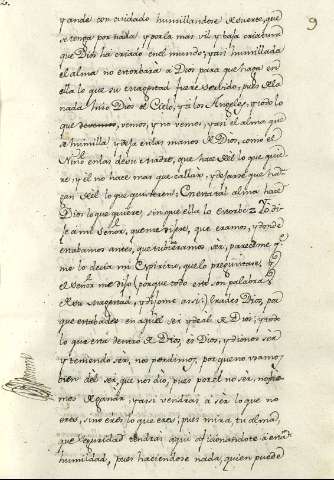 9
y ande con cuidado humillandose de suerte, que
se tenga por nada y por la mas vil y baja criatura
que Dios ha criado en el mundo; y asi humillada
el alma no estorbará a Dios para que haga en
ella lo que su magestad fuere servido, pues de la
nada hizo Dios el Cielo, y a los Angeles, y todo lo
que vemos, y no vemos, y asi el alma que
se humilla y deja en las manos de Dios, como el
Niño en las de su Madre, que hace del lo que quie-
re, y él no hace mas que callar, y dejarse que ha-
gan del lo que quisieren: Con esta tal alma hace
Dios lo que quiere, sin que ella lo estorbe. Yo di-
je a mi Señor, que me dijese, que eramos, y donde
estabamos antes, que tubieramos ser, pareceme q.e
me lo decia mi Espiritu, que lo preguntase; y
el Señor me dijo porque todo esto son palabras
de su magestad, y dijome assi: Erades Dios, por
que estabades en aquel ser ydeal de Dios; y todo
lo que esta dentro de Dios, es Dios, y dionos ser
y teniendo ser, nos perdimos, por que no usamos
bien del ser, que nos dió, pues por el no ser, nos
emos de ganar, y assi vendras a ser lo que no
eres, sino eres lo que eres; pues mira, tu alma,
que seguridad tendras aqui aficionandote a esta
humildad, pues haciendose nada, quien puede